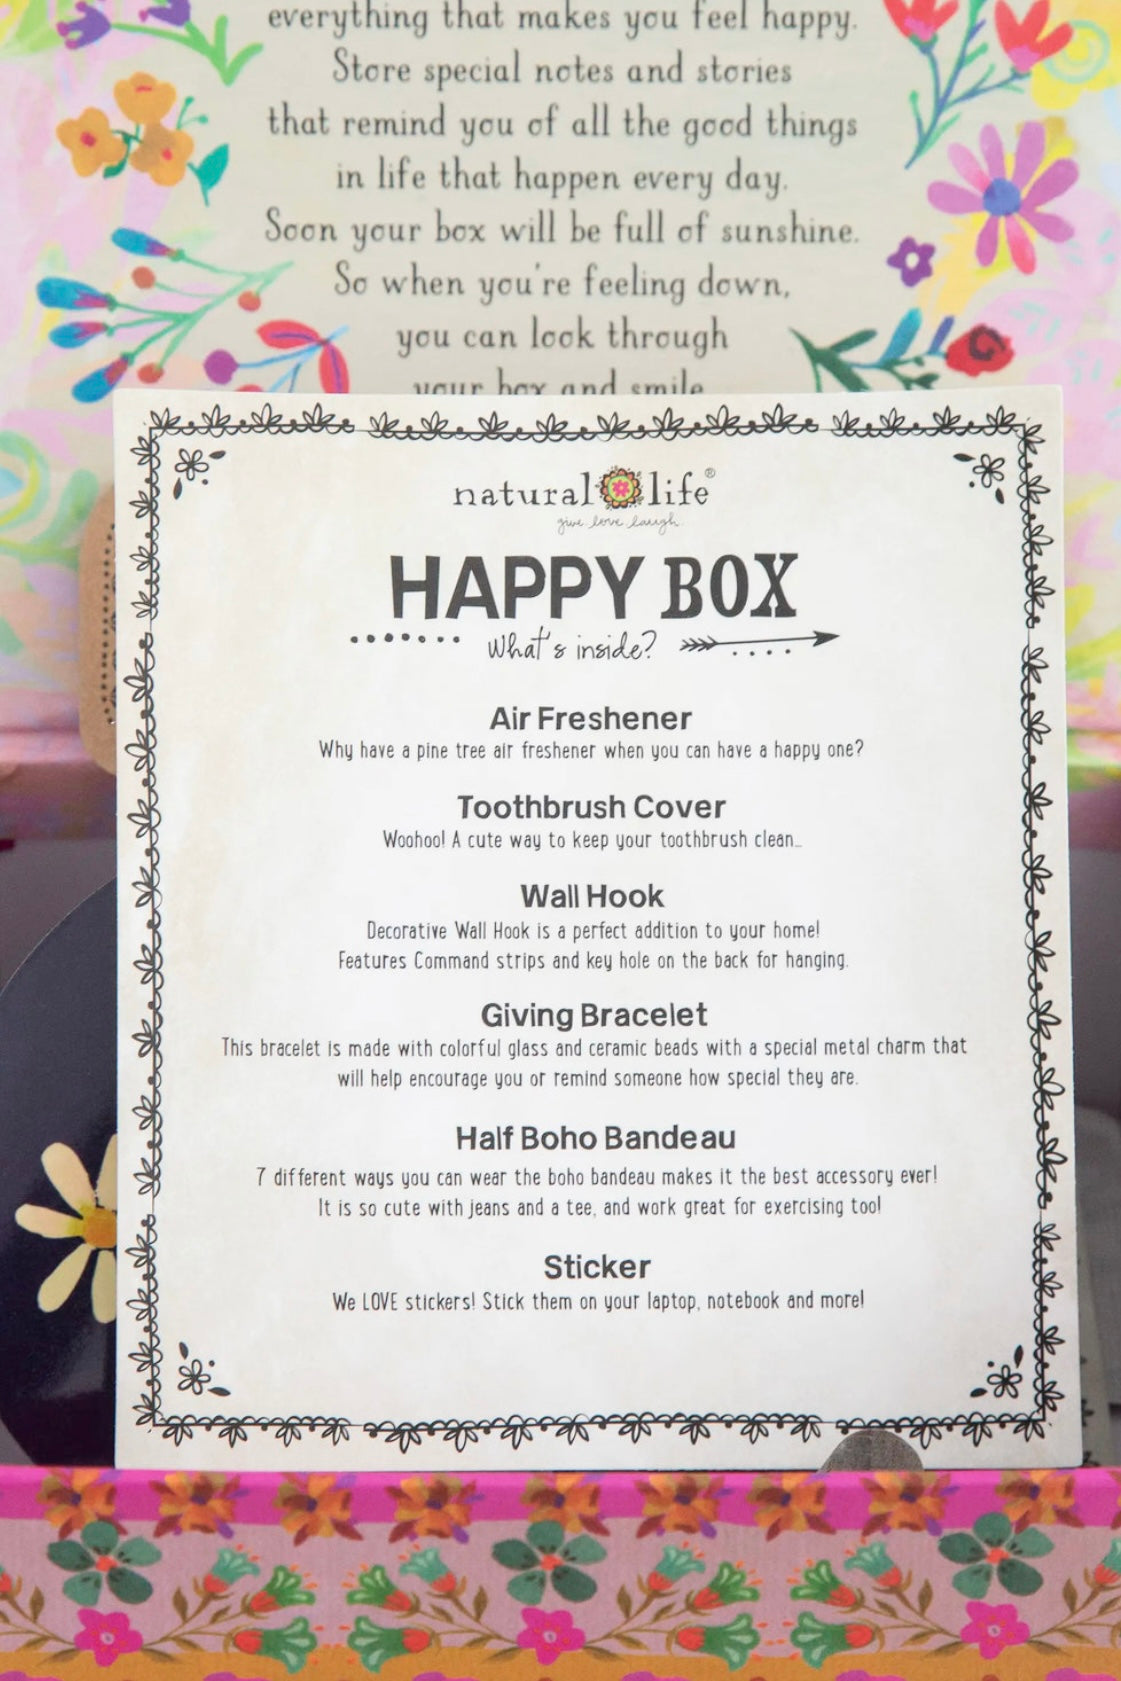 everything that makes you feel happy.
Store special notes and stories
that remind you of all the good things
in life that happen every day.
Soon your box will be full of sunshine.
So when you're feeling down,
you can look through
your box and smile
natural life®
give love laugh.
HAPPY BOX
What's inside?
Air Freshener
Why have a pine tree air freshener when you can have a happy one?
Toothbrush Cover
Woohoo! A cute way to keep your toothbrush clean...
Wall Hook
Decorative Wall Hook is a perfect addition to your home!
Features Command strips and key hole on the back for hanging.
Giving Bracelet
This bracelet is made with colorful glass and ceramic beads with a special metal charm that
will help encourage you or remind someone how special they are.
Half Boho Bandeau
7 different ways you can wear the boho bandeau makes it the best accessory ever!
It is so cute with jeans and a tee, and work great for exercising too!
Sticker
We LOVE stickers! Stick them on your laptop, notebook and more!